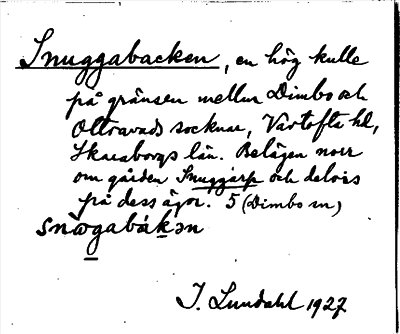 Snuggabacken, en hög kulle
på gränsen mellan Dimbo och
Ottravads socknar, Vartofta hd,
Skaraborgs län. Belägen norr
om gården Snuggarp och delvis
på dess ägor. 5 (Dimbo sn)
snωgabákən
J. Lundahl 1927